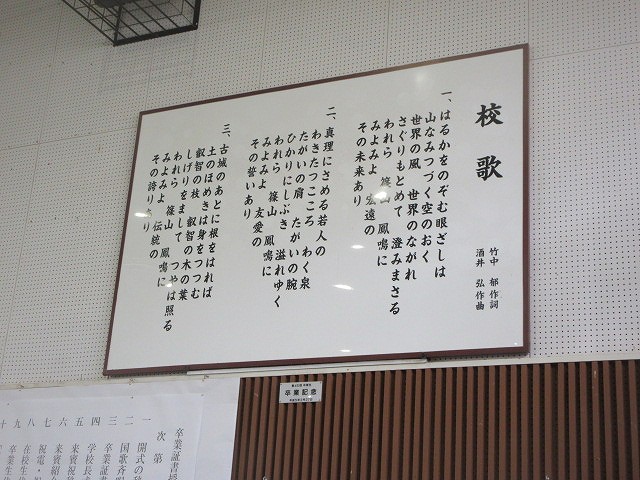 校歌
竹中 郁作詞
酒井 弘作曲
一、はるかをのぞむ眼ざしは
山なみつづく空のおく
世界の風 世界のながれ
さぐりもとめて 澄みまさる
われら 篠山 鳳鳴に
みよみよ 宏遠の
その未来あり
二、真理にさめる若人の
わきたつこころ わく泉
たがいの肩 たがいの腕
ひかりにしぶき 溢れゆく
われら 篠山 鳳鳴に
みよみよ 友愛の
その誓いあり
三、古城のあとに根をはれば
土のほめきは身をつつむ
叡智の枝 叡智の木の葉
しげりをまして つやは照る
われら 篠山 鳳鳴に
みよみよ 伝統の
その誇りあり
卒業記念
卒業証書授
次第
一 開式の
二 国歌斉唱
三 卒業証
四 学校長
五 来賓祝
六 来賓紹
七 祝電・
八 在校生
九 卒業生
十